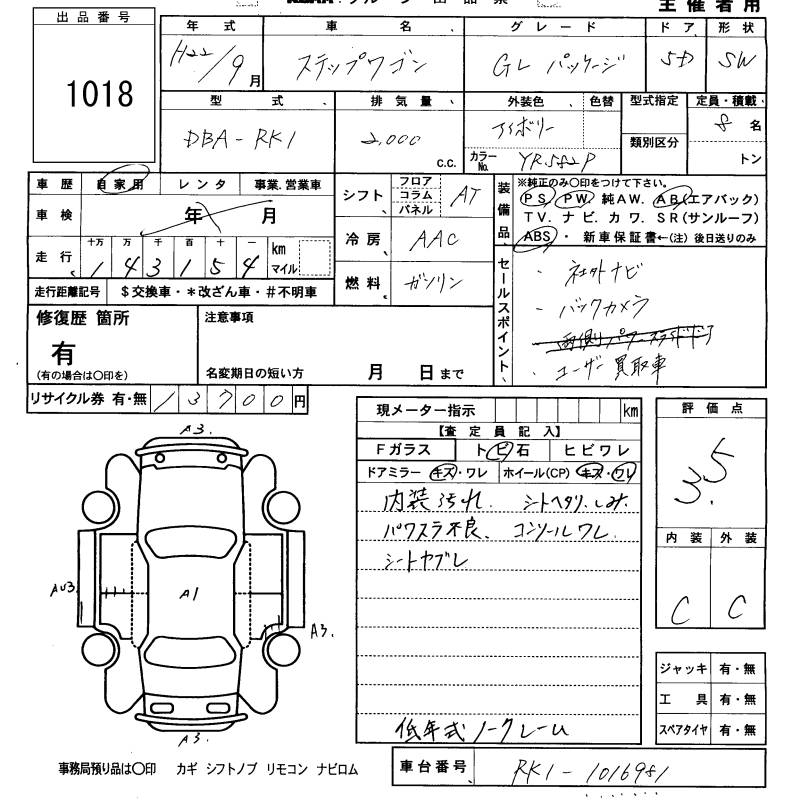 主催者用
出品番号
1018
年式 車名 グレード ドア 形状
H22/9月 ステップワゴン GL パッケージ 5D SW
型式 排気量 外装色 色替 型式指定 定員・積載
DBA-RK1 2,000 c.c. アイボリー 類別区分 8名
カラーNo. YR582P トン
車歴 自家用 レンタ 事業.営業車
車検 年 月
走行 十万 万 千 百 十 一 km マイル
1 4 3 1 5 4
走行距離記号 $交換車・*改ざん車・#不明車
シフト フロア コラム パネル AT
冷房 AAC
燃料 ガソリン
装備品 ※純正のみ○印をつけて下さい。
PS PW 純AW. AB(エアバック)
TV. ナビ. カワ. SR(サンルーフ)
ABS・ 新車保証書←(注)後日送りのみ
セールスポイント
・ 社外ナビ
・ バックカメラ
・ 両側パワースライドドア
・ ユーザー買取車
修復歴 箇所
有
(有の場合は○印を)
注意事項
名変期日の短い方 月 日まで
リサイクル券 有・無 13700円
現メーター指示 km
【査定員記入】
Fガラス トビ石 ヒビワレ
ドアミラー キズ・ワレ ホイール(CP) キズ・ワレ
内装汚れ、シートヘタリ.しみ.
パワスラ不良、コンソールワレ
シートヤブレ
低年式ノークレーム
評価点
3.5
内装 外装
C C
ジャッキ 有・無
工具 有・無
スペアタイヤ 有・無
A3.
AU3.
A1
A3.
A3.
事務局預り品は○印 カギ シフトノブ リモコン ナビロム
車台番号 RK1-1016981